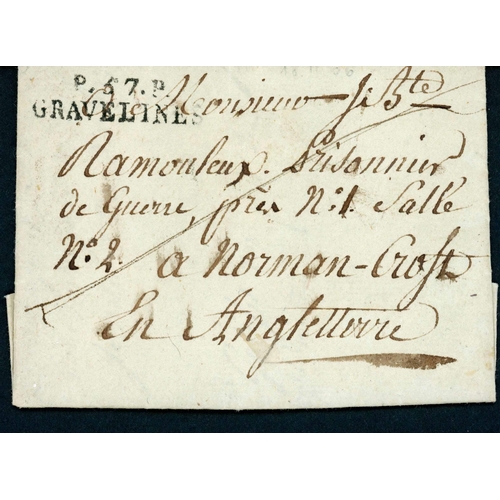 P. 57. P.
GRAVELINES
A Monsieur J. Bte
Ramouleux. prisonnier
de Guerre, près No. 1. Salle
No. 2. a Norman-Crost
En Angletterre